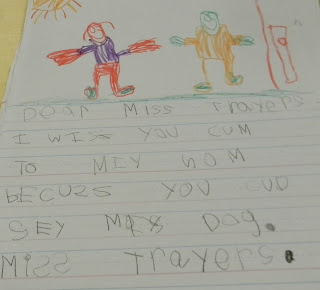 Dear Miss Trayers
I WISH YOU CUM
TO MIY hOM
beCUZS YOU CUD
SEY MIY DOG.
MISS Trayers.